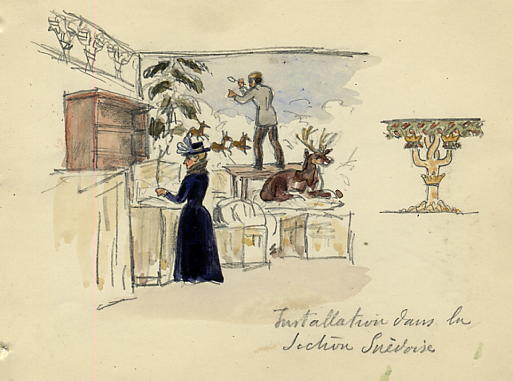 Installation dans la
Section Suédoise